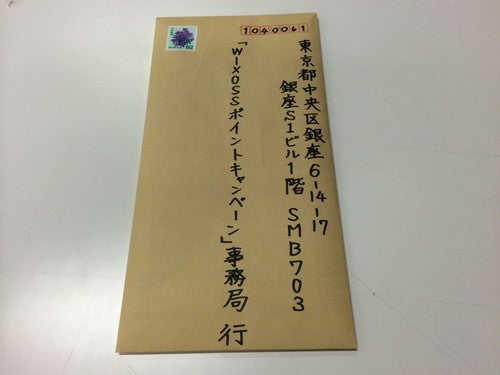 1040061
東京都中央区銀座6-14-17
銀座S1ビル1階 SMB703
「WIXOSSポイントキャンペーン」事務局 行
82